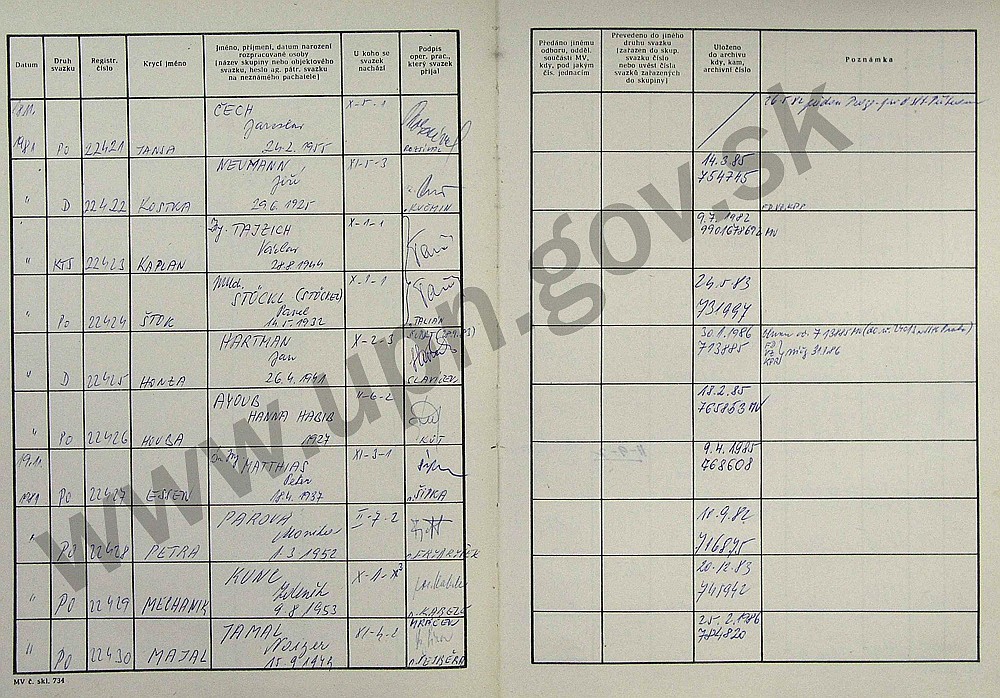 Datum
Druh svazku
Registr. číslo
Krycí jméno
Jméno, příjmení, datum narození
rozpracované osoby
(název skupiny nebo objektového
svazku, heslo ag. pátr. svazku
na neznámého pachatele)
U koho se
svazek
nachází
Podpis
oper. prac.,
který svazek
přijal
Předáno jinému
odboru, odděl.
součásti MV,
kdy, pod jakým
čís. jednacím
Převedeno do jiného
druhu svazku
(zařazen do skup.
svazku číslo
nebo uvést čísla
svazků zařazených
do skupiny)
Uloženo
do archivu
kdy, kam,
archivní číslo
Poznámka
18.11. 1981 PO 22421 TANJA
ČECH
Jaroslav
24.2.1955
X-5-1
ROZSÍVAL
" D 22422 KOSTKA
NEUMANN
Jiří
29.6.1925
XI-5-3
KUČMIN
14.3.85
754745
" KTS 22423 KAPLAN
Ing. TAJZICH
Václav
28.8.1944
X-1-1
9.7.1982
" PO 22424 ŠTOK
STÖCKL (STÖCKEL)
Pavel
14.5.1932
X-1-1
TALIÁN
24.5.83
731997
" D 22425 HONZA
HARTMAN
Jan
26.4.1941
X-2-3
SLAVÍČEK
30.1.1986
713885
" PO 22426 HOUBA
AYOUB
HANNA HABIB
1927
II-6-2
KÚT
18.2.85
765853 MV
19.11. 1981 PO 22427 ESSEN
Dr. Ing. MATTHIAS
Peter
18.4.1937
XI-3-1
ŠÍPKA
9.4.1985
768608
" PO 22428 PETRA
PAROVÁ
Monika
1.3.1952
II-7-2
FRYDRYŠEK
11.9.82
716875
" PO 22429 MECHANIK
KUNC
Zdeněk
9.8.1953
X-1-X3
KAREŠ
20.12.83
741942
" PO 22430 MAJAL
TAMAL
15.9.1944
XI-4-2
MRÁČEN
25.2.1986
784820
MV č. skl. 734
www.upn.gov.sk